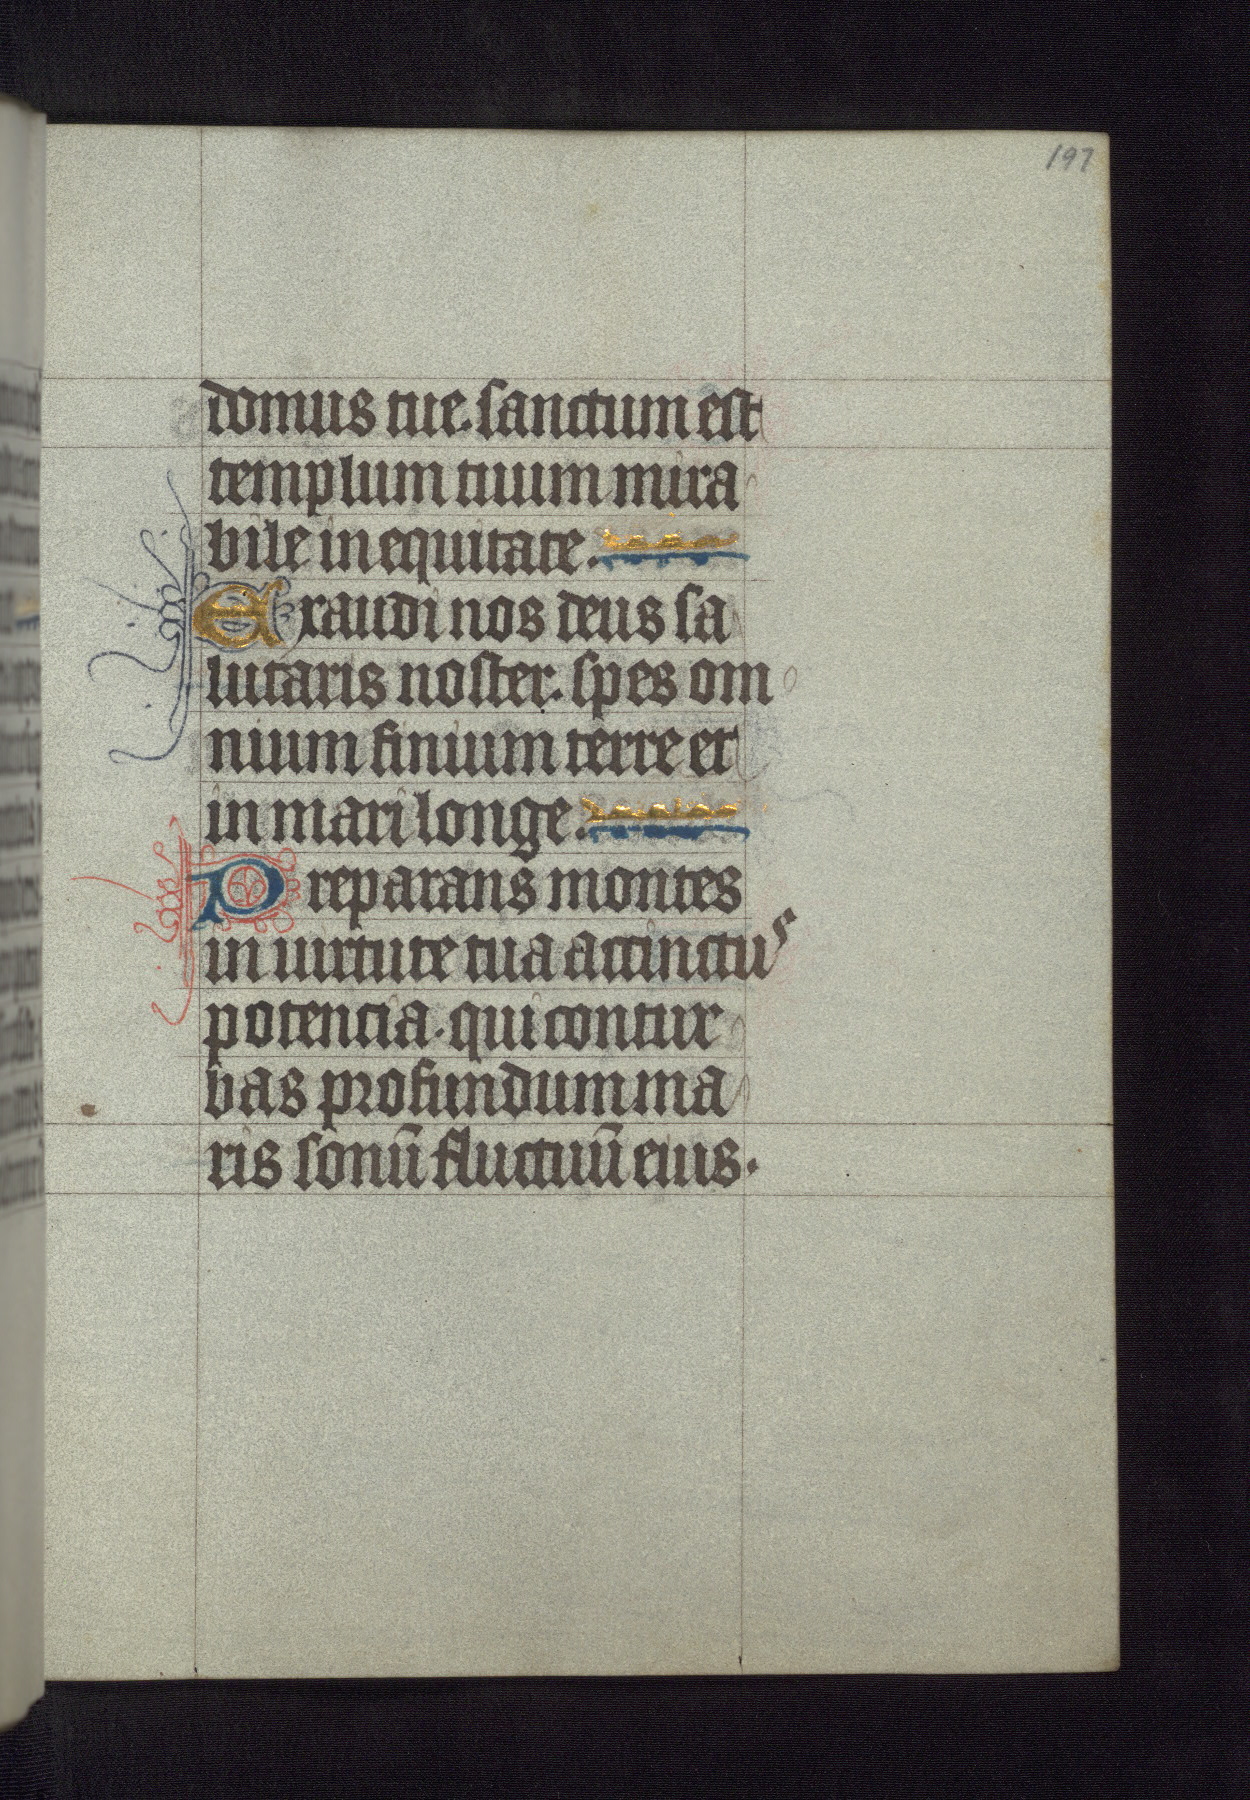 197
domus tue. sanctum est
templum tuum mira
bile in equitate.
Exaudi nos deus sa
lutaris noster. spes om
nium finium terre et
in mari longe.
Preparans montes
in uirtute tua accinctus
potencia. qui contur
bas profundum ma
ris sonū fluctuū eius.